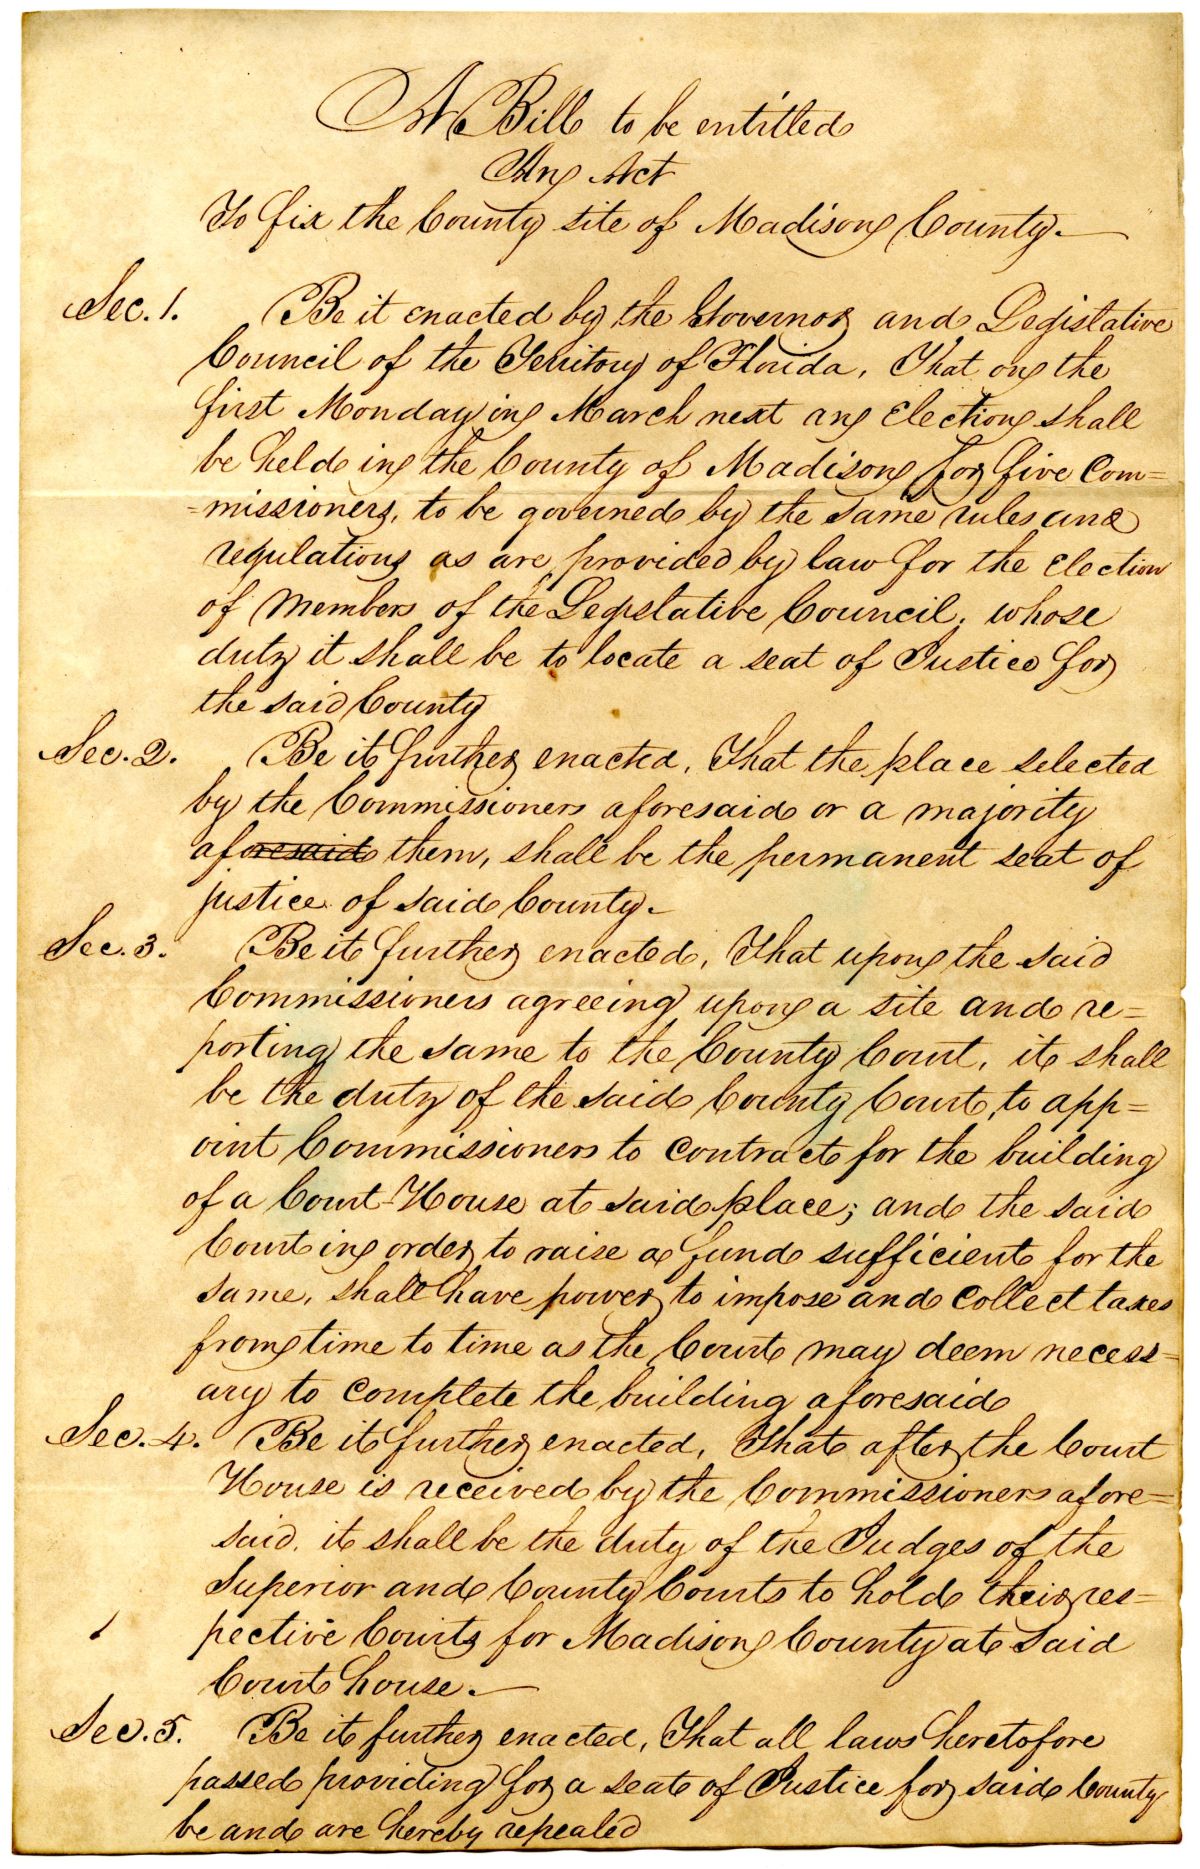 A Bill to be entitled
An Act
To fix the County site of Madison County.—
Sec. 1. Be it enacted by the Governor and Legislative
Council of the Territory of Florida, That on the
first Monday in March next an Election shall
be held in the County of Madison for five Com=
=missioners, to be governed by the same rules and
regulations as are provided by law for the Election
of Members of the Legislative Council, whose
duty it shall be to locate a seat of Justice for
the said County
Sec. 2. Be it further enacted, That the place selected
by the Commissioners aforesaid or a majority
aforesaid them, shall be the permanent seat of
justice of said County.—
Sec. 3. Be it further enacted, That upon the said
Commissioners agreeing upon a site and re=
porting the same to the County Court, it shall
be the duty of the said County Court, to app=
oint Commissioners to contract for the building
of a Court-House at said place; and the said
Court in order to raise a fund sufficient for the
same, shall have power to impose and collect taxes
from time to time as the Court may deem necess=
ary to complete the building aforesaid
Sec. 4. Be it further enacted, That after the Court
House is received by the Commissioners afore=
said, it shall be the duty of the Judges of the
Superior and County Courts to hold their res=
pective Courts for Madison County at said
Court house.—
Sec. 5. Be it further enacted, That all laws heretofore
passed providing for a seat of Justice for said County
be and are hereby repealed